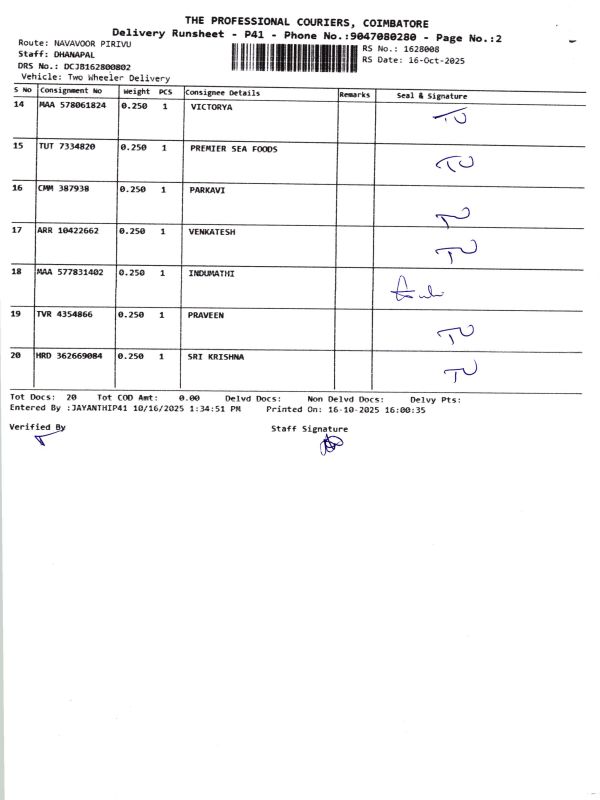 THE PROFESSIONAL COURIERS, COIMBATORE
Delivery Runsheet - P41 - Phone No.:9047080280 - Page No.:2
Route: NAVAVOOR PIRIVU RS No.: 1628008
Staff: DHANAPAL RS Date: 16-Oct-2025
DRS No.: DCJB162800802
Vehicle: Two Wheeler Delivery
S No Consignment No Weight PCS Consignee Details Remarks Seal & Signature
14 MAA 578061824 0.250 1 VICTORYA TU
15 TUT 7334820 0.250 1 PREMIER SEA FOODS TU
16 CMM 387938 0.250 1 PARKAVI TU
17 ARR 10422662 0.250 1 VENKATESH TU
18 MAA 577831402 0.250 1 INDUMATHI
19 TVR 4354866 0.250 1 PRAVEEN TU
20 HRD 362669084 0.250 1 SRI KRISHNA TU
Tot Docs: 20 Tot COD Amt: 0.00 Delvd Docs: Non Delvd Docs: Delvy Pts:
Entered By :JAYANTHIP41 10/16/2025 1:34:51 PM Printed On: 16-10-2025 16:00:35
Verified By Staff Signature